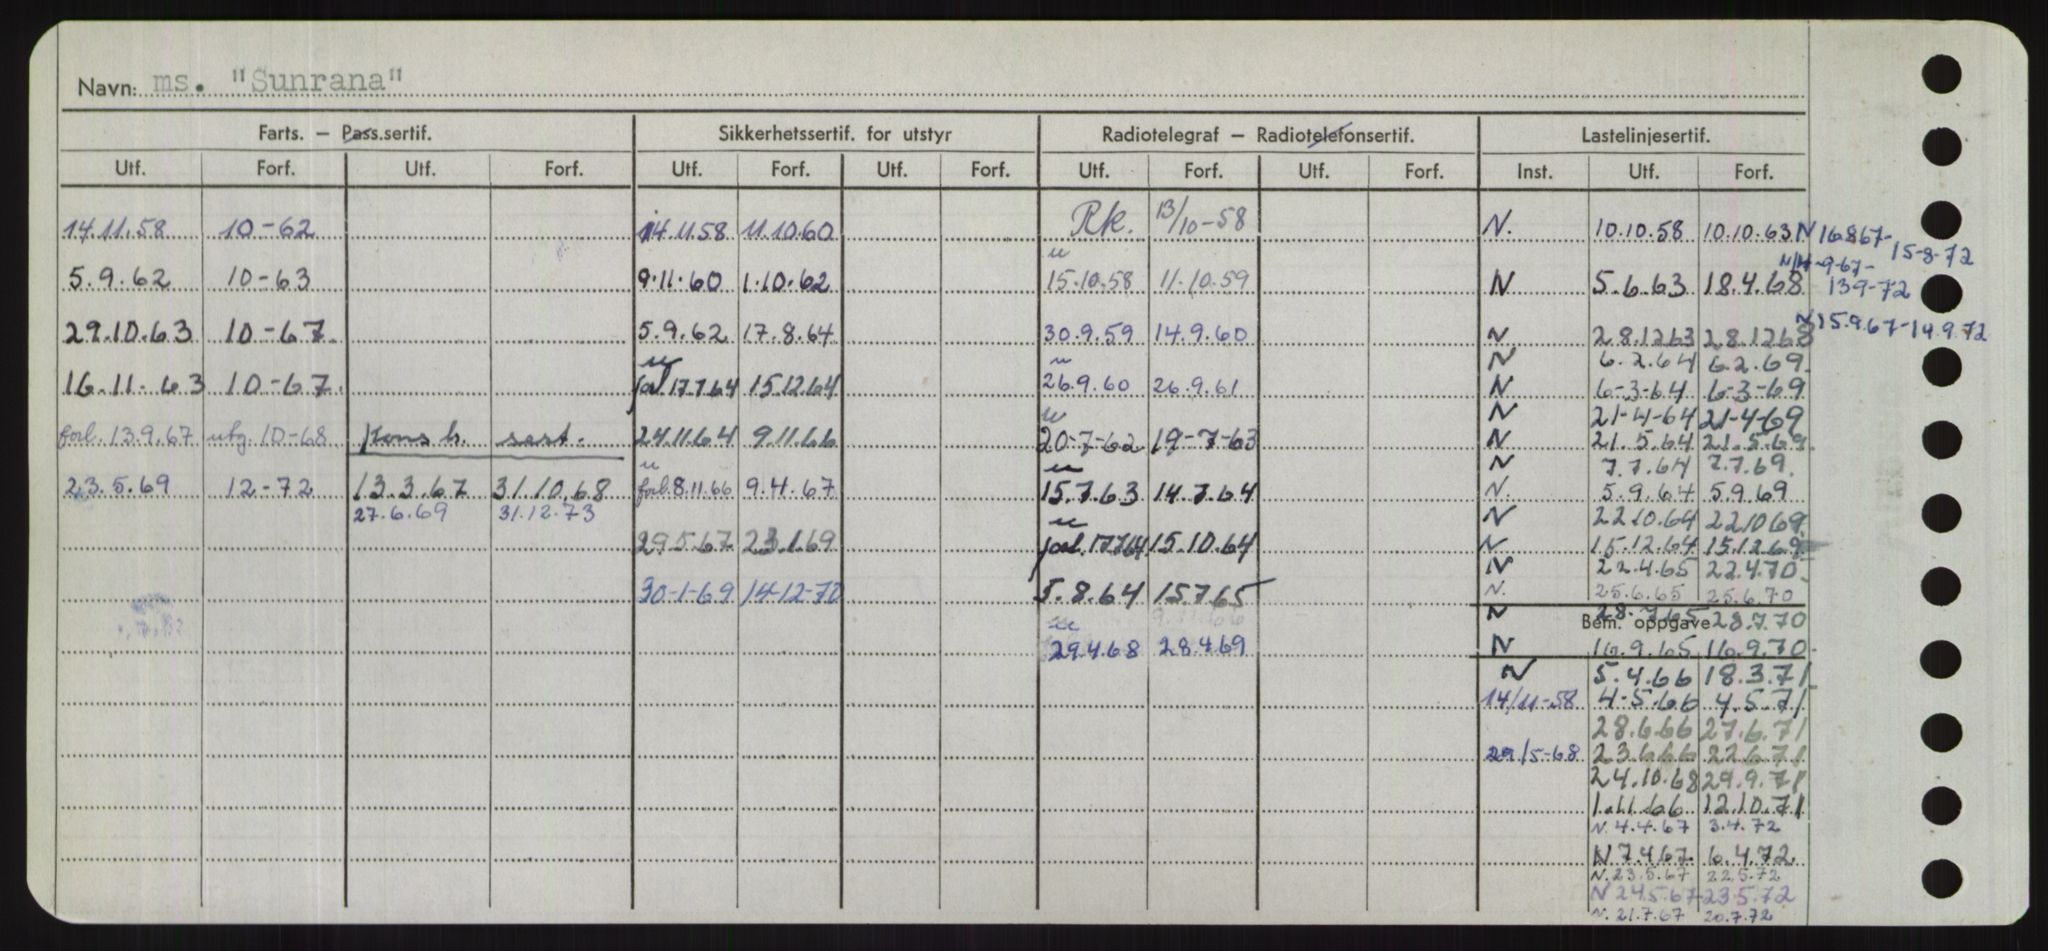 Navn: ms. "Sunrana"
Farts. – Pass.sertif. Sikkerhetssertif. for utstyr Radiotelegraf – Radiotelefonsertif. Lastelinjesertif.
Utf. Forf. Utf. Forf. Utf. Forf. Utf. Forf. Utf. Forf. Utf. Forf. Inst. Utf. Forf.
14.11.58 10-62 14.11.58 11.10.60 Rk. 13/10-58 N. 10.10.58 10.10.63 N 16.8.67- 15-8-72
N 14-9-67- 13.9-72
5.9.62 10-63 9.11.60 1.10.62 15.10.58 11.10.59 N 5.6.63 18.4.68
29.10.63 10-67. 5.9.62 17.8.64 30.9.59 14.9.60 N 28.12.63 28.12.68 N 15.9.67-14.9.72
N 6.2.64 6.2.69.
16.11.63 10-67. forl. 17.7.64 15.12.64 26.9.60 26.9.61 N 6-3-64 6-3-69
N 21-4-64 21-4-69
forl. 13.9.67 utg. 10-68 Kons b. sert. 24.11.64 9.11.66 20-7-62 19-7-63 N 21.5.64 21.5.69.
N 7.7.64 7.7.69.
23.5.69 12-72 13.3.67 31.10.68 forl. 8.11.66 9.4.67 15.7.63 14.7.64 N. 5.9.64 5.9.69
27.6.69 31.12.73 N 22.10.64 22.10.69
29.5.67 23.1.69 forl. 17.7.64 15.10.64 N 15.12.64 15.12.69
N 22.4.65 22.4.70
30-1-69 14-12-70 5.8.64 15.7.65 N. 25.6.65 25.6.70
N 28.7.65 28.7.70
Bem. oppgave
29.4.68 28.4.69 N 16.9.65 16.9.70
N 5.4.66 18.3.71
14/11-58 4-5.66 4.5.71
28.6.66 27.6.71
29/5-68 23.6.66 22.6.71
24.10.68 29.9.71
1.11.66 12.10.71
N. 4.4.67 3.4.72
N 7.4.67. 6.4.72
N. 23.5.67 22.5.72
N 24.5.67 23.5.72
N. 21.7.67 20.7.72